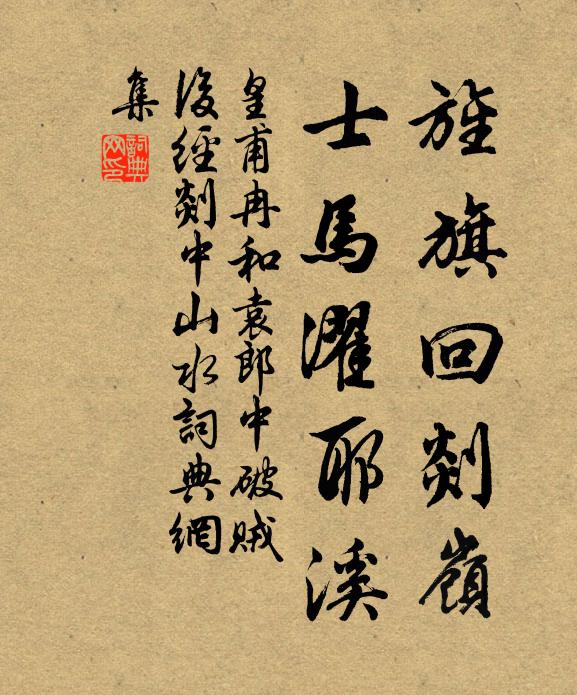 旌旗回剡嶺
士馬濯耶溪
皇甫冉和袁郎中破賊
後經剡中山水詞典網
集
詞典網印